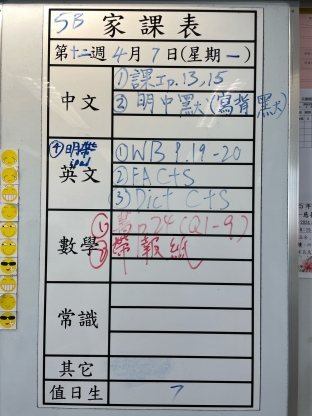 5B 家課表
第十二週4月7日(星期一)
中文
① 課Ip.13,15
② 明中默(寫背默)
④明帶
ipad
英文
① WB P.19-20
② FA C+S
③ Dict C+S
數學
① p.24 (Q1-9)
② 帶報紙
常識
其它
值日生
7